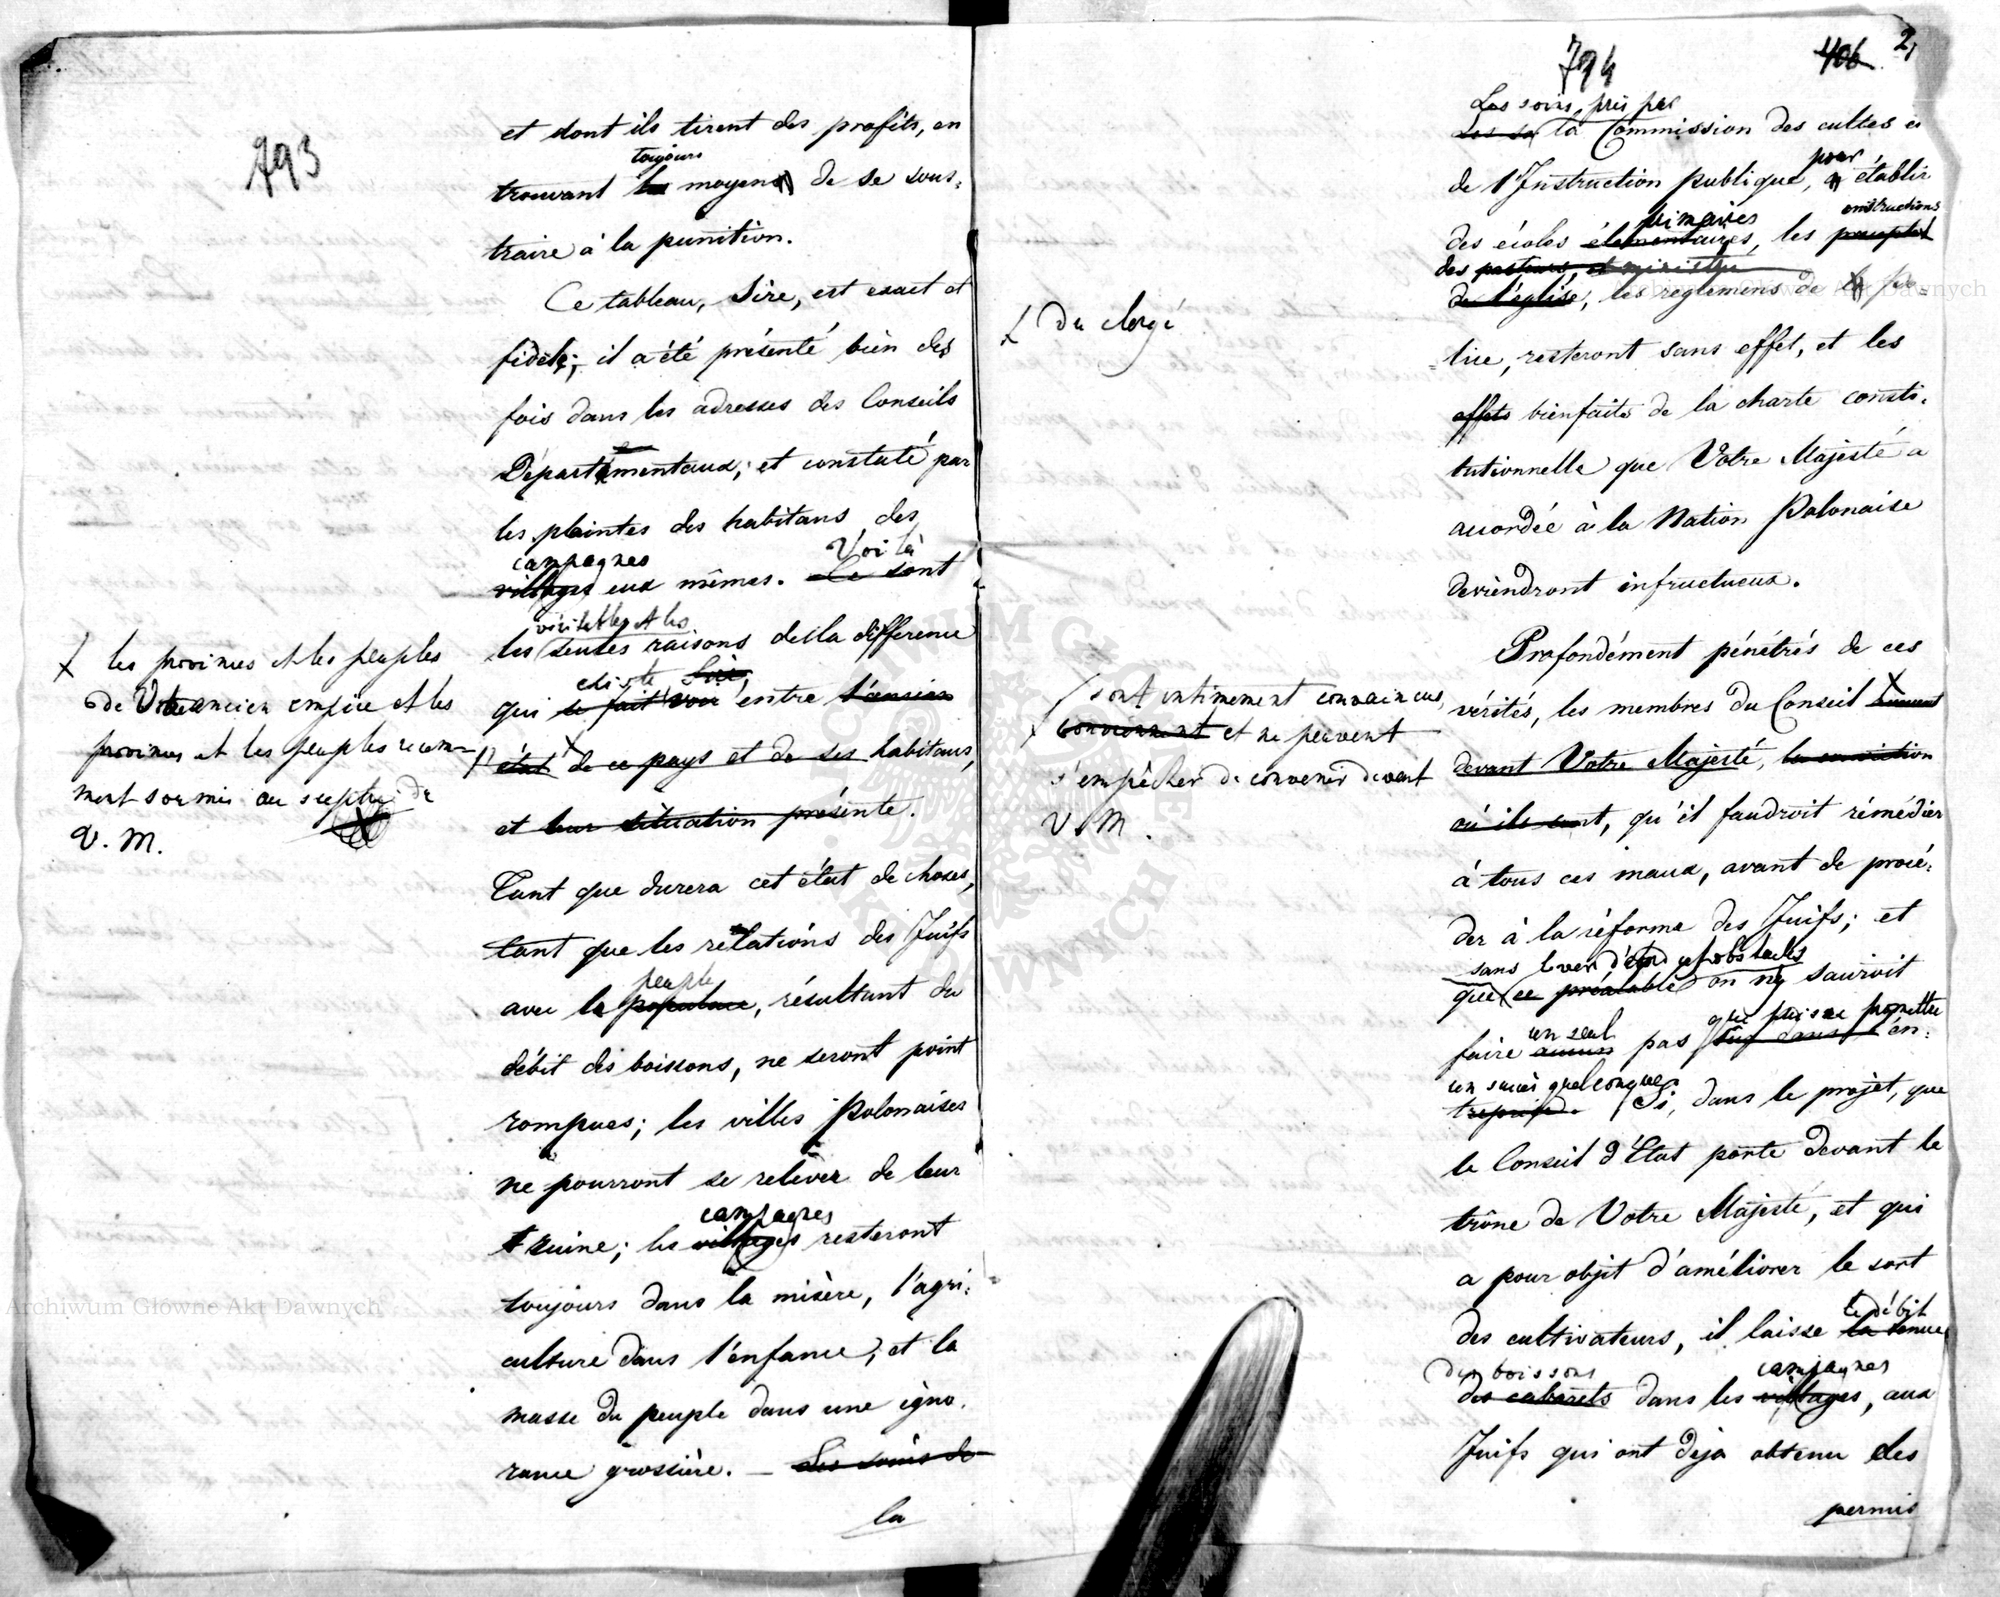 793
et dont ils tirent des profits, en
toujours
trouvant les moyens de se sous-
traire à la punition.
Ce tableau, Sire, est exact et
fidèle; il a été présenté bien des
fois dans les adresses des Conseils
Départementaux; et constaté par
les plaintes des habitans des
campagnes Voilà
villages eux mêmes. Ce sont
véritables et les
les seules raisons de la différence
existe Sire,
qui se fait voir entre l'ancien
état de ce pays et de ses habitans,
et leur situation présente.
les provinces et les peuples
de Votre ancien empire et les
provinces et les peuples recem-
ment soumis au sceptre de
V. M.
Tant que durera cet état de choses,
tant que les relations des Juifs
peuple
avec le populace, résultant du
débit des boissons, ne seront point
rompues; les villes Polonaises
ne pourront se relever de leur
campagnes
ruine; les villages resteront
toujours dans la misère, l'agri-
culture dans l'enfance, et la
masse du peuple dans une igno-
rance grossière. — Les soins de
la
794 406 2,
Les soins, pris par
Les so la Commission des cultes et
pour
de l'Instruction publique, établir
primaires instructions
des écoles élémentaires, les
des pasteurs, et ministres
de l'église, les reglemens de la po-
du clergé
lice, resteront sans effet, et les
effets bienfaits de la charte consti-
tutionnelle que Votre Majesté a
accordée à la Nation Polonaise
deviendront infructueux.
Profondément pénétrés de ces
vérités, les membres du Conseil
devant Votre Majesté, la conviction
où ils sont, qu'il faudroit rémédier
sont intimement convaincus
conviennent et ne peuvent
s'empêcher de convenir devant
V. M.
à tous ces maux, avant de procé-
der à la réforme des Juifs; et
sans lever d'abord ces obstacles
que ce préalable on ne sauroit
un seul qui puisse promettre
faire aucun pas sûr dans l'en-
un succès quelconque.
treprise. Si, dans le projet, que
le Conseil d'Etat porte devant le
trône de Votre Majesté, et qui
a pour objet d'améliorer le sort
le débit
des cultivateurs, il laisse la tenue
des boissons campagnes
des cabarets dans les villages, aux
Juifs qui ont déja obtenu des
permis
Archiwum Główne Akt Dawnych
Archiwum Główne Akt Dawnych